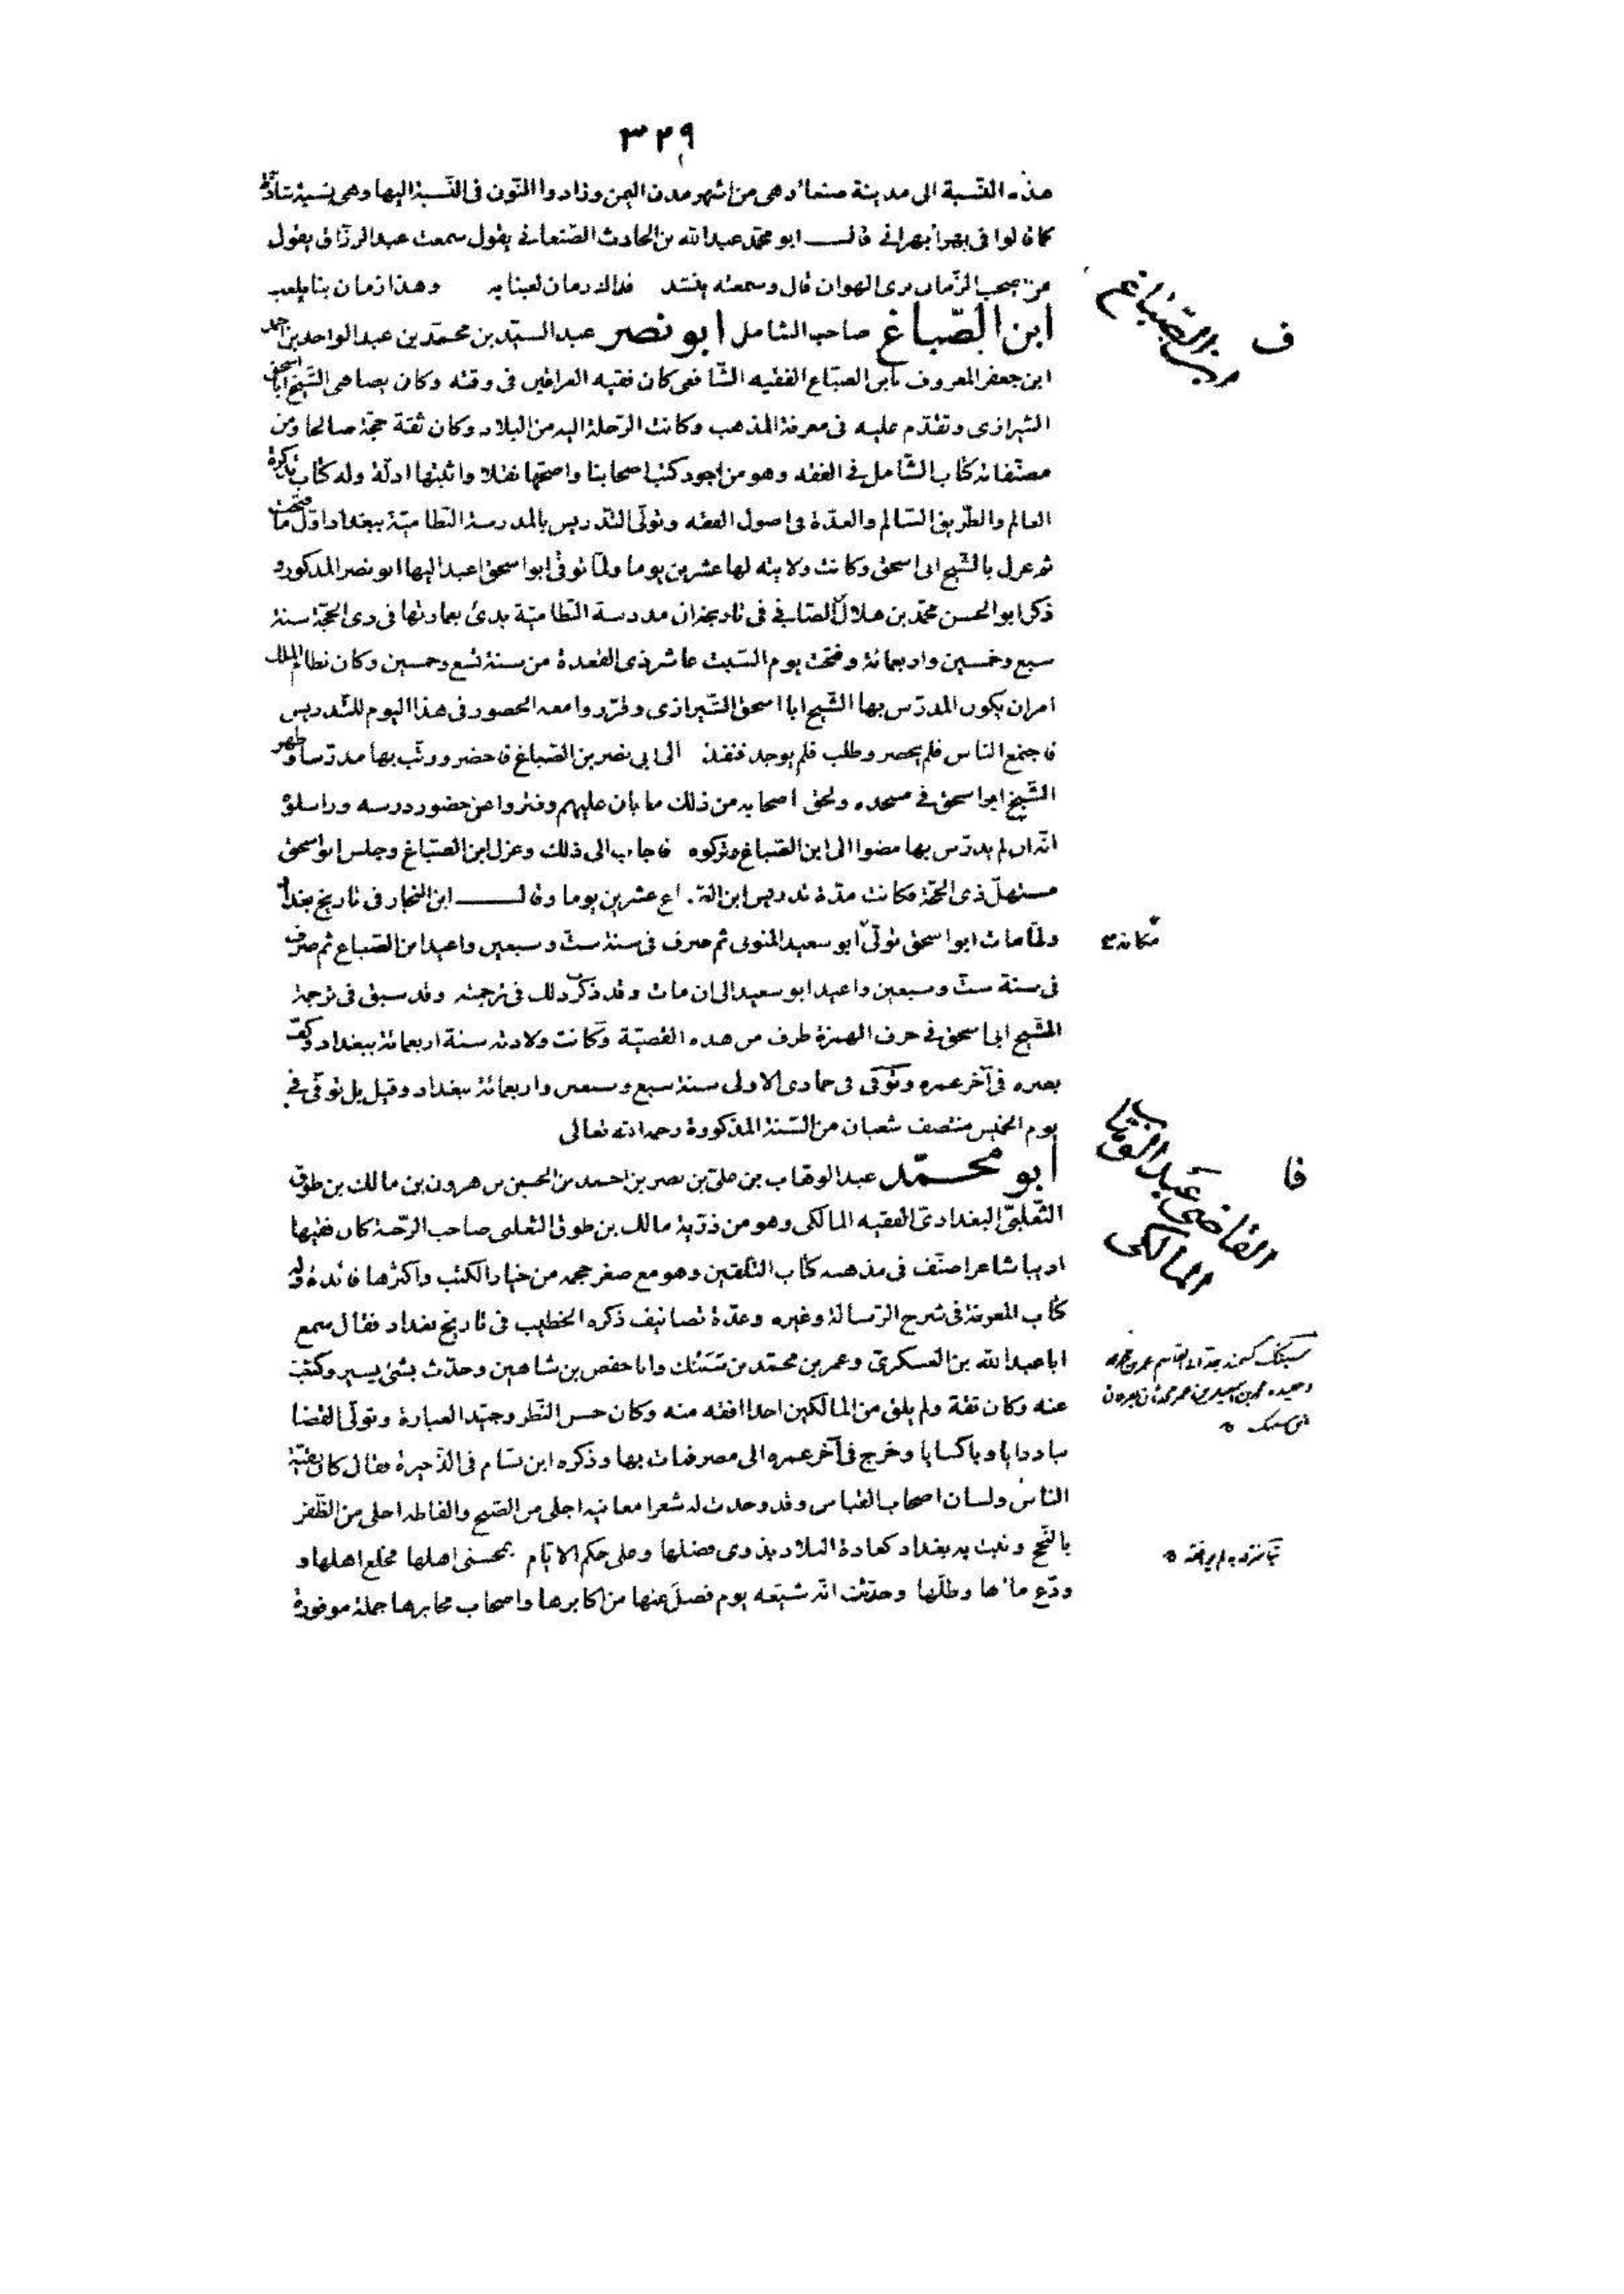 ٣٢٩
هذه النسبة الى مدينة صنعاء وهى من اشهر مدن اليمن وزادوا النون فى النسبة اليها وهى نسبة شاذة
كما قالوا فى بهراء بهرانى قالــ ابو محمد عبدالله بن الحارث الصنعانى يقول سمعت عبدالرزاق يقول
من يصحب الزمان يرى الهوان قال وسمعته ينشد فذاك زمان لعبنا به وهذا زمان بنا يلعب
ابن الصّباغ صاحب الشامل ابو نصر عبد السيّد بن محمّد بن عبد الواحد بن احمد
ابن جعفر المعروف بابن الصبّاغ الفقيه الشّافعى كان فقيه العراقين فى وقته وكان يضاهى الشّيخ ابا اسحق
الشيرازى وتقدّم عليه فى معرفة المذهب وكانت الرّحلة اليه من البلاد وكان ثقة حجّة صالحا ومن
مصنّفاته كتاب الشّامل فى الفقه وهو من اجود كتب اصحابنا واصحّها نقلا واثبتها ادلّة وله كتاب تذكرة
العالم والطّريق السّالم والعدّة فى اصول الفقه وتولّى التّدريس بالمدرسة النّظاميّة ببغداد اوّل ما فتحت
ثم عزل بالشّيخ ابى اسحق وكانت ولايته لها عشرين يوما ولمّا توفى ابو اسحق اعيد اليها ابو نصر المذكور و
ذكر ابو الحسن محمّد بن هلال الصّابى فى تاريخه ان مدرسة النّظاميّة بدئ بعمارتها فى ذى الحجّة سنة
سبع وخمسين واربعمائة وفتحت يوم السّبت عاشر ذى القعدة من سنة تسع وخمسين وكان نظام الملك
امر ان يكون المدرّس بها الشّيخ ابا اسحق الشّيرازى وقرّروا معه الحضور فى هذا اليوم للتّدريس
فاجتمع الناس فلم يحضر وطلب فلم يوجد فنفذ الى ابى نصر بن الصّباغ فاحضر ورتّب بها مدرّسا وظهر
الشّيخ ابو اسحق فى مسجده ولحق اصحابه من ذلك ما بان عليهم وفتروا عن حضور درسه وراسلوه
انّه ان لم يدرّس بها مضوا الى ابن الصّباغ وتركوه فاجاب الى ذلك وعزل ابن الصبّاغ وجلس ابو اسحق
مستهلّ ذى الحجّة فكانت مدّة تدريس ابن الصّباغ عشرين يوما وقالــ ابن النجّار فى تاريخ بغداد
ولمّا مات ابو اسحق تولّى ابو سعيد المتولى ثم صرف فى سنة ستّ وسبعين واعيد ابن الصّباغ ثم صرف
مكانه
فى سنة ستّ وسبعين واعيد ابو سعيد الى ان مات وقد ذكرت ذلك فى ترجمته وقد سبق فى ترجمة
الشّيخ ابى اسحق فى حرف الهمزة طرف من هذه القضيّة وكانت ولادته سنة اربعمائة ببغداد وكفّ
بصره فى آخر عمره وتوفّى فى جمادى الاولى سنة سبع وسبعين واربعمائة ببغداد وقيل بل توفّى فى
يوم الخميس منتصف شعبان من السّنة المذكورة رحمه الله تعالى
ابو محمّد عبد الوهّاب بن علىّ بن نصر بن احمد بن الحسين بن هرون بن مالك بن طوق
الثّعلبىّ البغدادىّ الفقيه المالكى وهو من ذرّيّة مالك بن طوق الثعلبى صاحب الرّحبة كان فقيها
اديبا شاعرا صنّف فى مذهبه كتاب التّلقين وهو مع صغر حجمه من خيار الكتب واكثرها فائدة وله
كتاب المعونة فى شرح الرّسالة وغيره وعدّة تصانيف ذكره الخطيب فى تاريخ بغداد فقال سمع
ابا عبدالله بن العسكرىّ وعمر بن محمّد بن سَبَنْك وابا حفص بن شاهين وحدّث بشئ يسير وكتبت
عنه وكان ثقة ولم يلق من المالكين احدا افقه منه وكان حسن النّظر وجيّد العبارة وتولّى القضاء
ببادرايا وباكسايا وخرج فى آخر عمره الى مصر فمات بها وذكره ابن بسّام فى الذّخيرة فقال كان بقيّة
الناس ولسان اصحاب القياس وقد وجدت له شعرا معانيه اجلى من الصّبح والفاظه احلى من الظّفر
بالنّجح ونبت به بغداد كعادة البلاد بذوى فضلها وعلى حكم الايّام بمحسنى اهلها فخلع اهلها و
ودّع ماءها وظلّها وحدّثت انّه شيّعه يوم فصل عنها من اكابرها واصحاب محابرها جملة موفورة
ف
ابن الصّبّاغ
فا
القاضى عبد الوهاب
المالكى